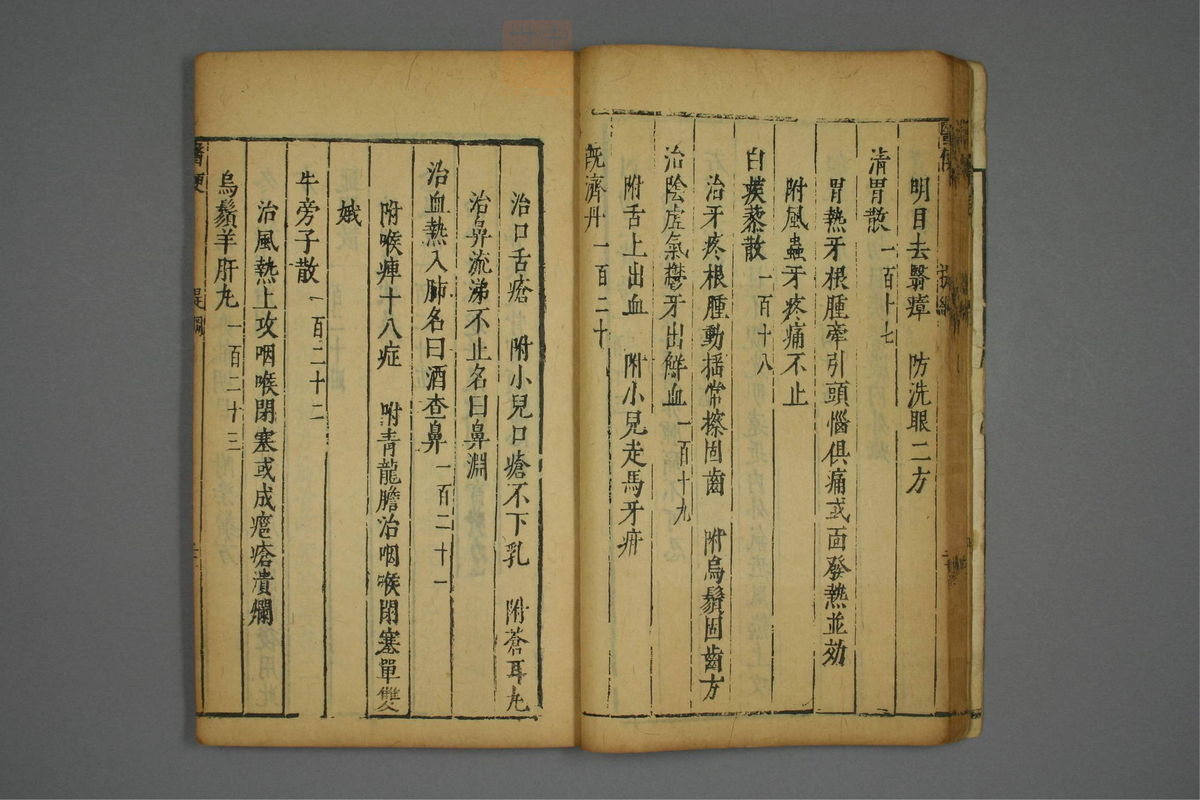 明目去醫瘴　防洗眼二方
清胃散　一百十七
胃熱牙根腫牽引頭惱俱痛或面發熱並効
附風蟲牙疼痛不止
白蒺藜散　一百十八
治牙疼根腫動揺常擦固齒　附烏鬚固齒方
治陰虛氣欝牙出鮮血　一百十九
附舌上出血　附小兒走馬牙疳
既濟丹　一百二十
治口舌瘡　附小兒口瘡不下乳　附蒼耳丸
治鼻流涕不止名曰鼻淵
治血熱入肺名曰酒查鼻　一百二十一
附喉痺十八症　咐青龍膽治咽喉閉塞單雙
娥
牛旁子散　一百二十二
治風熱上攻咽喉閉塞或成瘟瘡潰爛
烏鬚羊肝丸　一百二十三
醫便　提綱